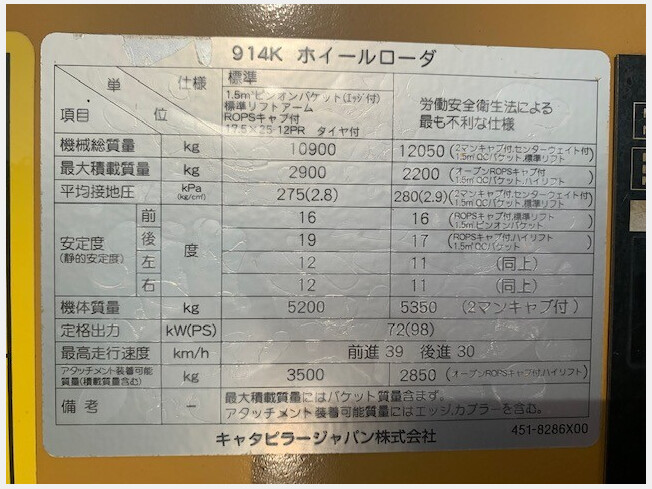 914K ホイールローダ
単位 項目 仕様 標準
1.5m³ピンオンバケット(エッジ付)
標準リフトアーム
ROPSキャブ付
17.5×25-12PR タイヤ付
労働安全衛生法による
最も不利な仕様
機械総質量 kg 10900 12050 (2マンキャブ付,センターウェイト付 1.5m³QCバケット,標準リフト)
最大積載質量 kg 2900 2200 (オープンROPSキャブ付 1.5m³QCバケット,ハイリフト)
平均接地圧 kPa (kg/cm²) 275(2.8) 280(2.9) (2マンキャブ付,センターウェイト付 1.5m³QCバケット,標準リフト)
安定度 (静的安定度) 度
前 16 16 (ROPSキャブ付,標準リフト 1.5m³ピンオンバケット)
後 19 17 (ROPSキャブ付,ハイリフト 1.5m³QCバケット)
左 12 11 (同上)
右 12 11 (同上)
機体質量 kg 5200 5350 (2マンキャブ付)
定格出力 kW(PS) 72(98)
最高走行速度 km/h 前進 39 後進 30
アタッチメント装着可能質量(積載質量含む) kg 3500 2850 (オープンROPSキャブ付,ハイリフト)
備考 − 最大積載質量にはバケット質量含まず。
アタッチメント装着可能質量にはエッジ,カプラーを含む。
キャタピラージャパン株式会社 451-8286X00